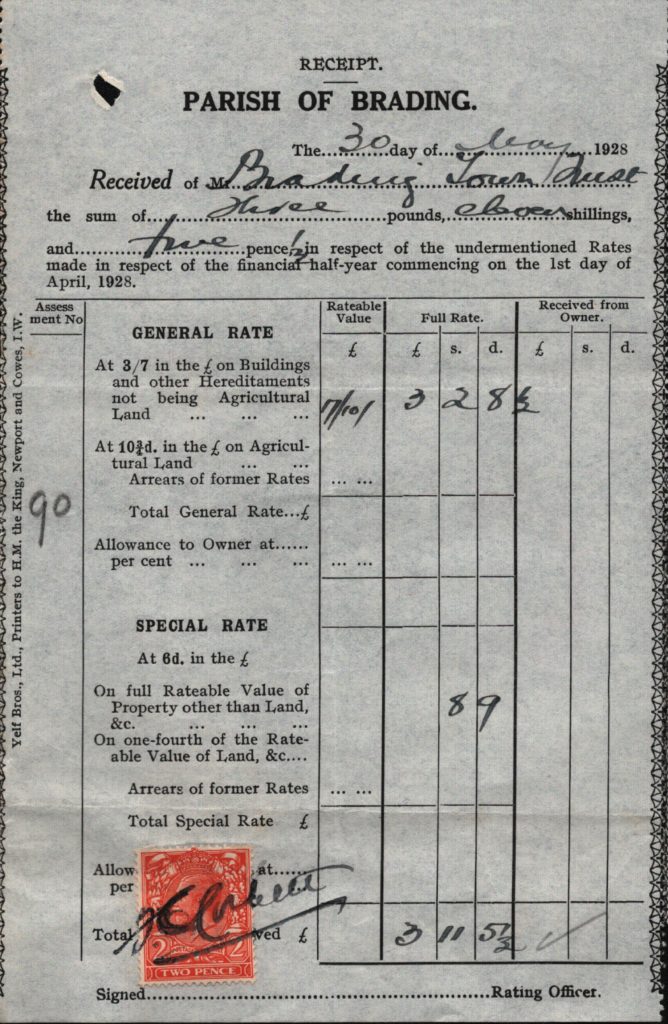 RECEIPT.
PARISH OF BRADING.
The 30 day of May 1928
Received of Mr Brading Town Trust
the sum of Three pounds, eleven shillings,
and five pence ½ in respect of the undermentioned Rates
made in respect of the financial half-year commencing on the 1st day of
April, 1928.
Assess ment No
Rateable Value
Full Rate.
Received from Owner.
GENERAL RATE
£ £ s. d. £ s. d.
At 3/7 in the £ on Buildings
and other Hereditaments
not being Agricultural
Land ... ... ... 3 2 8 ½
At 10¾d. in the £ on Agricul-
tural Land ... ...
Arrears of former Rates ... ...
90
Total General Rate...£
Allowance to Owner at......
per cent ... ... ... ... ...
SPECIAL RATE
At 6d. in the £
On full Rateable Value of
Property other than Land, 8 9
&c. ... ... ...
On one-fourth of the Rate-
able Value of Land, &c....
Arrears of former Rates ... ...
Total Special Rate £
Allow at......
per
Total ved £ 3 11 5½
2 2
TWO PENCE
Signed Rating Officer.
Yelf Bros., Ltd., Printers to H.M. the King, Newport and Cowes, I.W.